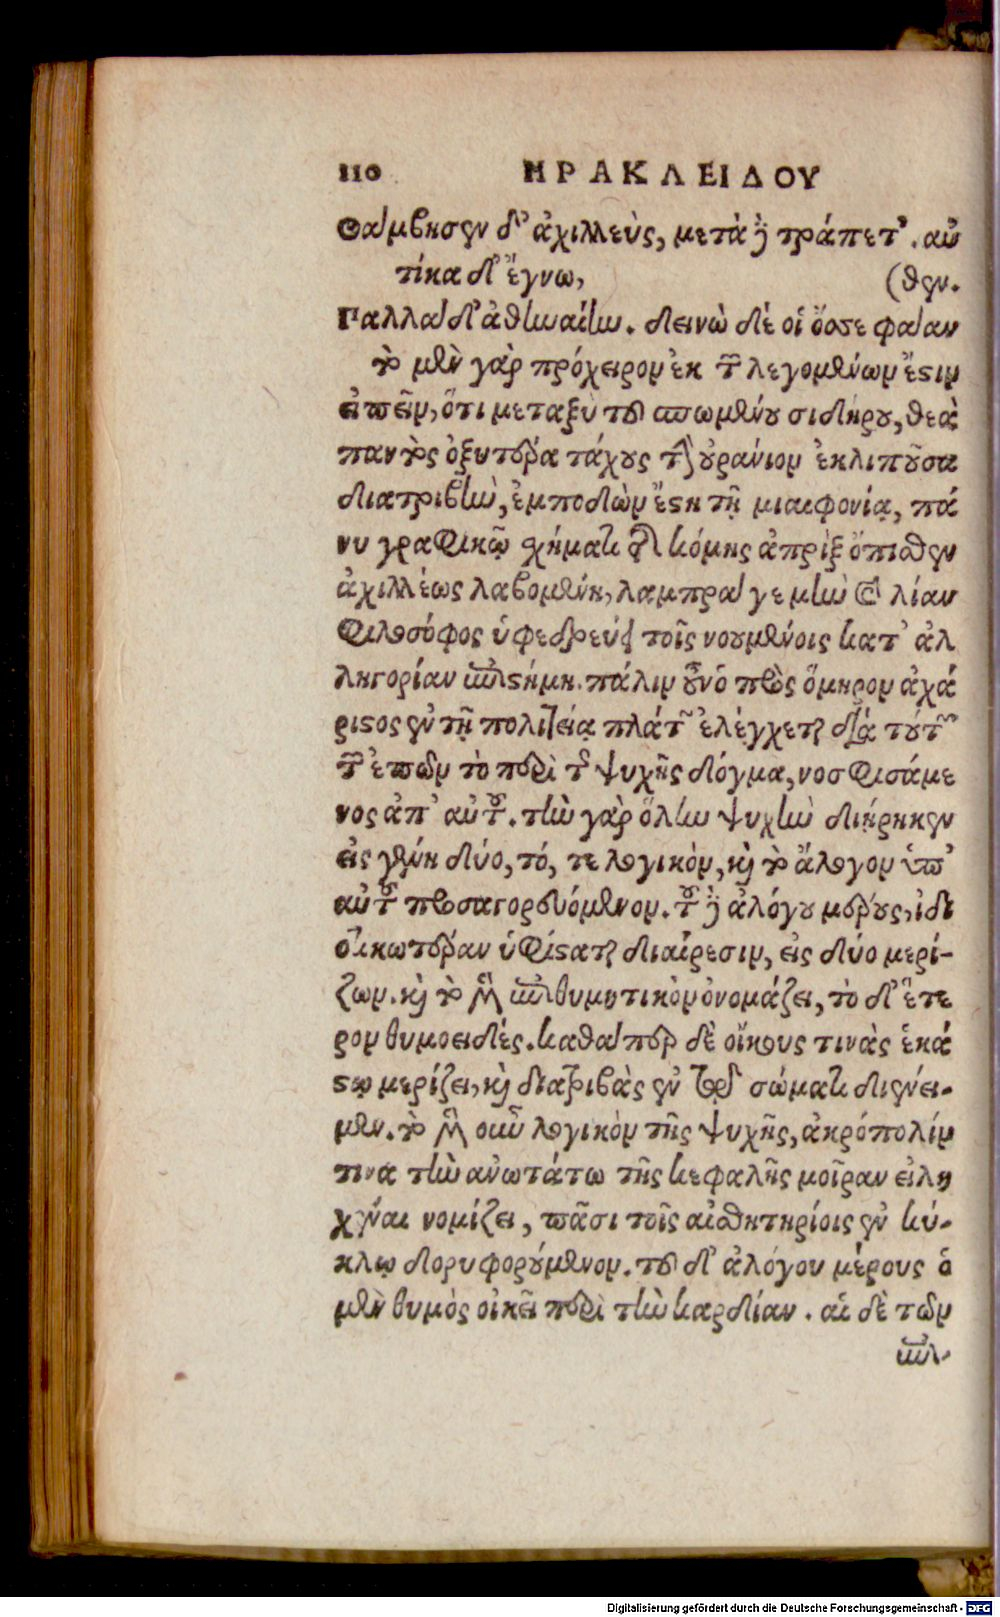 110 ΗΡΑΚΛΕΙΔΟΥ
Θάμβησεν δ' ἀχιλλεὺς, μετὰ δὲ τράπετ'. αὐ
τίκα δ' ἔγνω, (θεν.
Παλλάδ' ἀθηναίην. δεινὼ δέ οἱ ὄσσε φάαν
τὸ μὲν γὰρ πρόχειρον ἐκ τῶν λεγομένων ἔστιν
εἰπεῖν, ὅτι μεταξὺ τοῦ σπωμένου σιδήρου, θεὰ
παντὸς ὀξυτέρα τάχους τὴν οὐράνιον ἐκλιποῦσα
διατριβὴν, ἐμποδὼν ἔστη τῇ μιαιφονίᾳ, πά
νυ γραφικῷ σχήματι τῆς κόμης ἀπρὶξ ὄπισθεν
ἀχιλλέως λαβομένη, λαμπρά γε μὴν καὶ λίαν
φιλόσοφος ὑφεδρεύει τοῖς νοουμένοις κατ' ἀλ
ληγορίαν ἐπιστήμη. πάλιν οὖν ὁ πρὸς ὅμηρον ἀχά
ριστος ἐν τῇ πολιτείᾳ πλάτων ἐλέγχεται διὰ τούτων
τῶν ἐπῶν τὸ περὶ τῆς ψυχῆς δόγμα, νοσφισάμε
νος ἀπ' αὐτοῦ. τὴν γὰρ ὅλην ψυχὴν διῄρηκεν
εἰς γένη δύο, τό, τε λογικὸν, καὶ τὸ ἄλογον ὑπ'
αὐτοῦ προσαγορευόμενον. τοῦ δὲ ἀλόγου μέρους, ἰδι
οικωτέραν ὑφίσταται διαίρεσιν, εἰς δύο μερί-
ζων. καὶ τὸ μὲν ἐπιθυμητικὸν ὀνομάζει, τὸ δ' ἕτε
ρον θυμοειδές. καθάπερ δὲ οἴκους τινὰς ἑκά
στῳ μερίζει, καὶ διατριβὰς ἐν τῷ σώματι διένει-
μεν. τὸ μὲν οὖν λογικὸν τῆς ψυχῆς, ἀκρόπολίν
τινα τὴν ἀνωτάτω τῆς κεφαλῆς μοῖραν εἰλη
χέναι νομίζει, πᾶσι τοῖς αἰσθητηρίοις ἐν κύ-
κλῳ δορυφορούμενον. τοῦ δ' ἀλόγου μέρους ὁ
μὲν θυμὸς οἰκεῖ περὶ τὴν καρδίαν. αἱ δὲ τῶν
ἐπι-
Digitalisierung gefördert durch die Deutsche Forschungsgemeinschaft - DFG